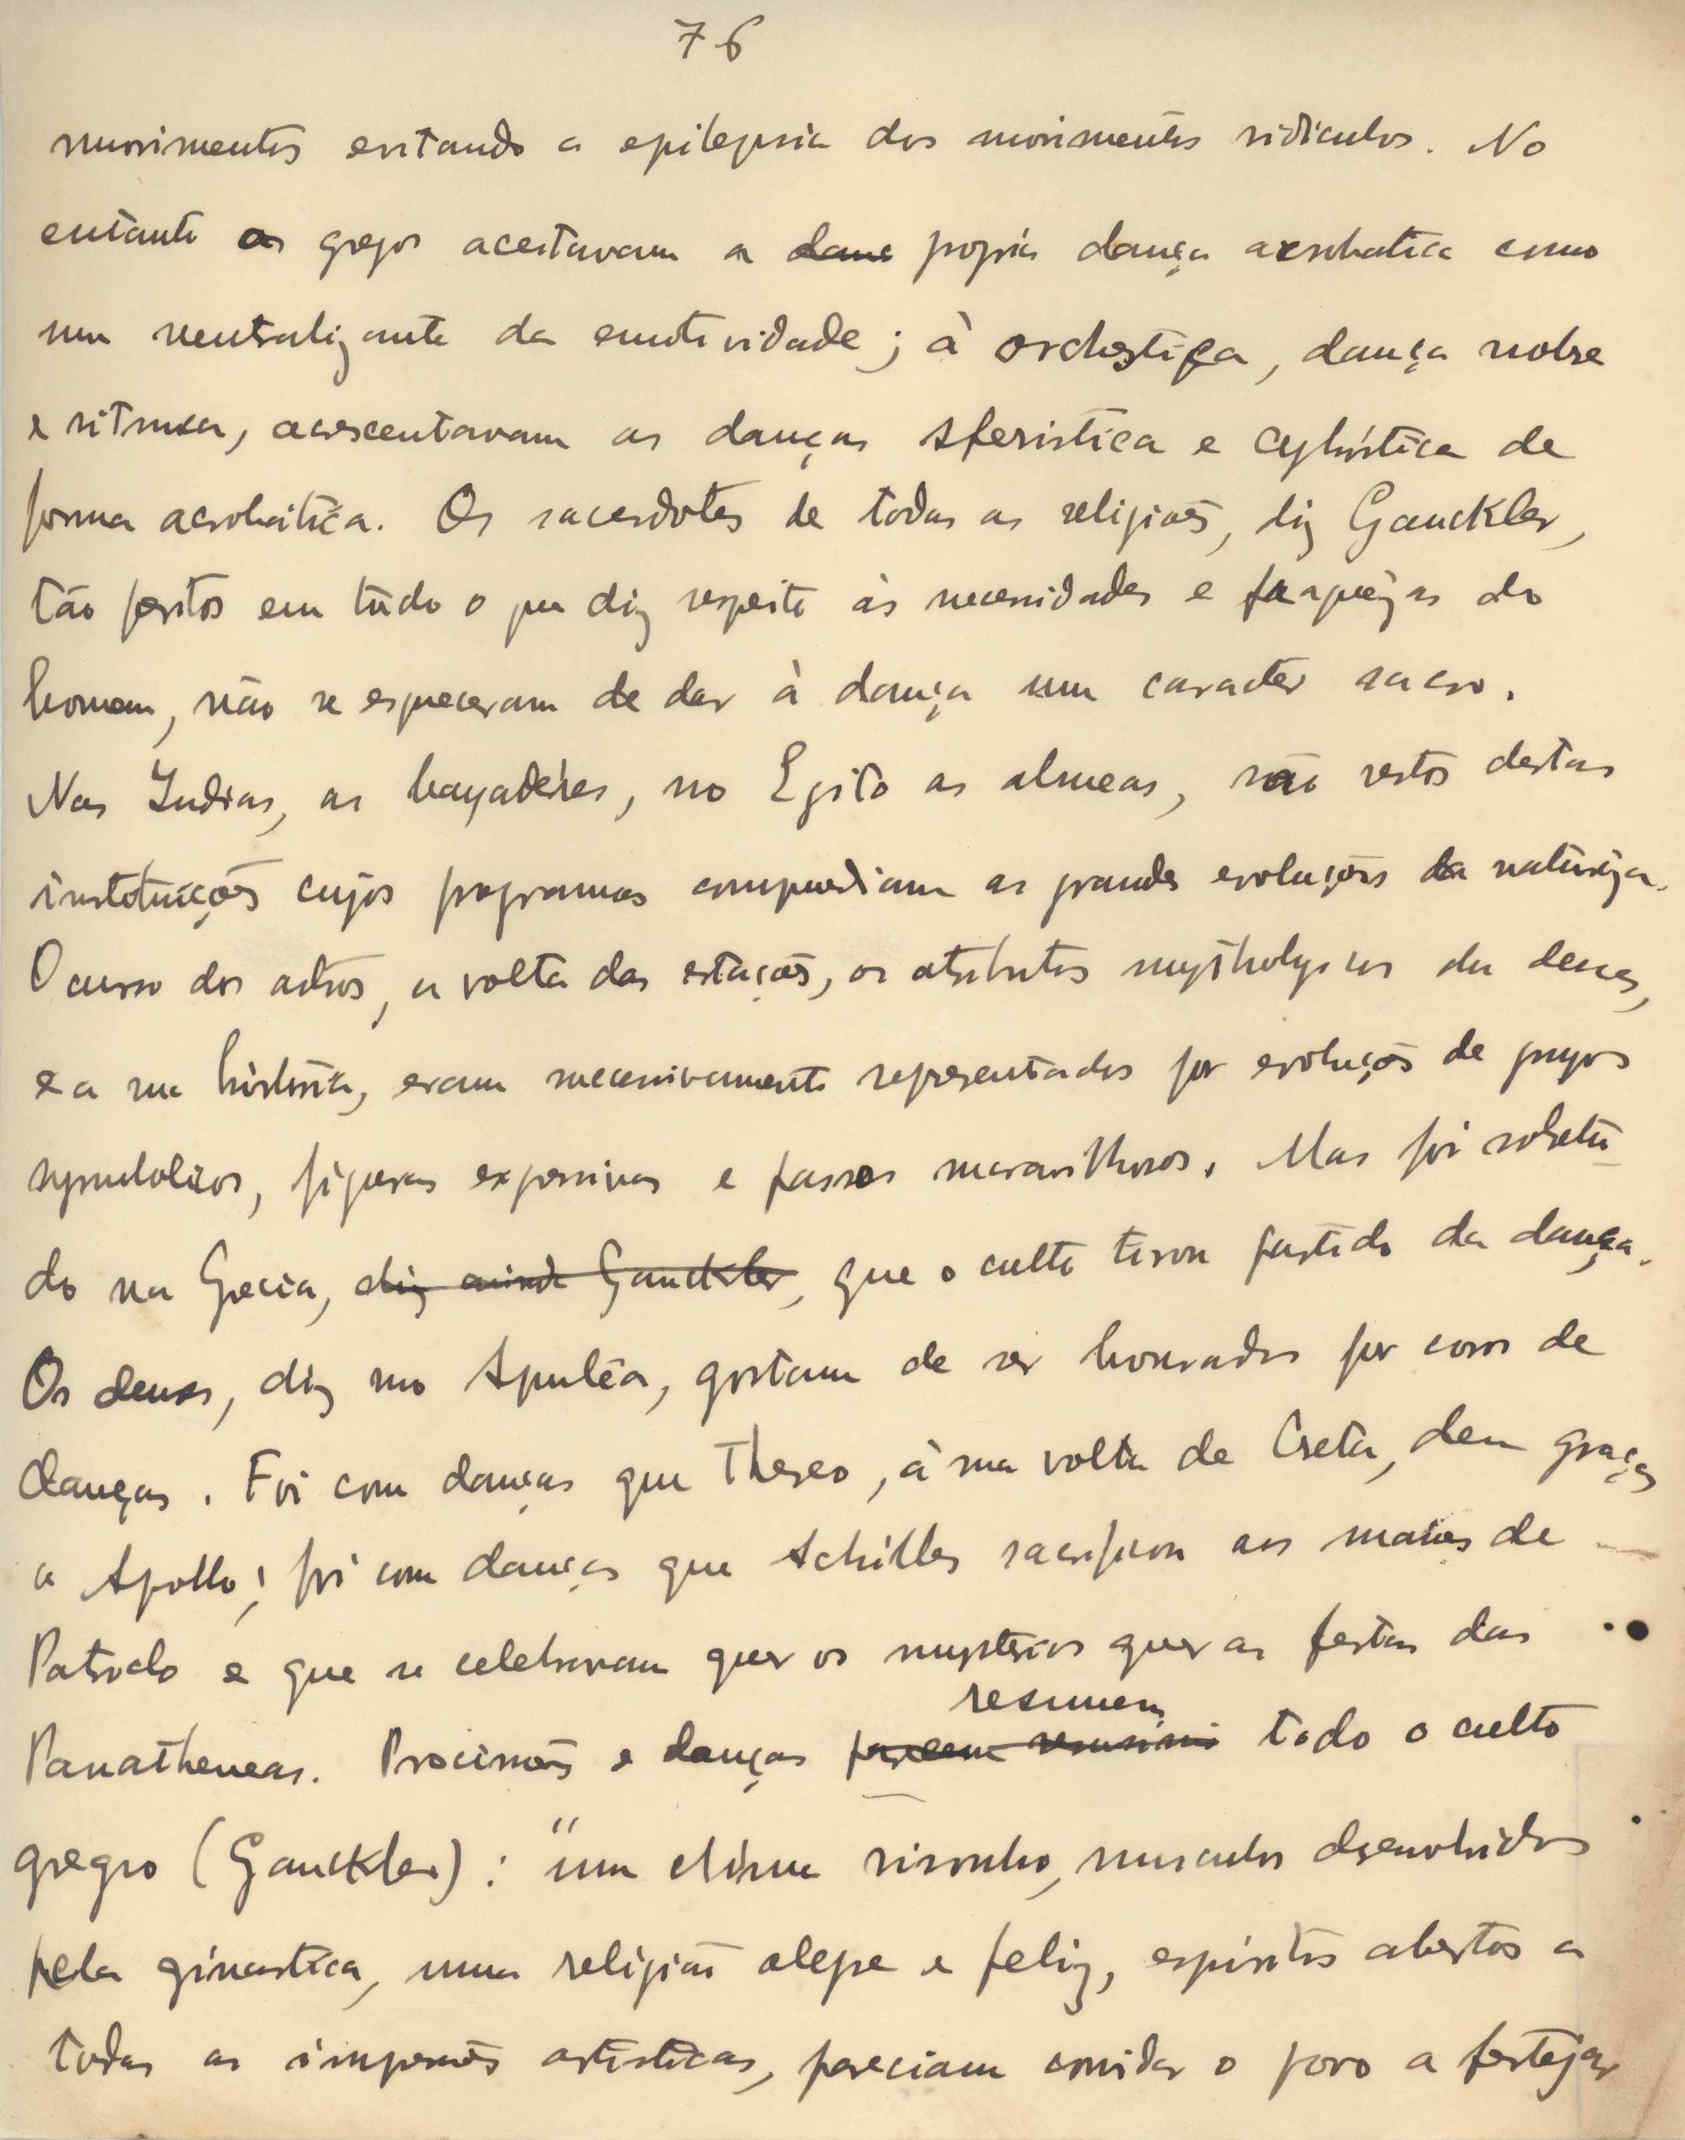 76
movimentos evitando a epilepsia dos movimentos ridiculos. No
entanto os gregos aceitavam a danç propria dança acrobatica como
um neutralizante da emotividade; à orchestica, dança nobre
e ritmica, acrescentavam as danças sferistica e cybistica de
forma acrobatica. Os sacerdotes de todas as religiões, diz Gauckler,
tão peritos em tudo o que diz respeito às necessidades e fraquezas do
homem, não se esqueceram de dar à dança um caracter sacro.
Nas Indias, as bayadères, no Egito as almeas, são restos destas
instituições cujos programas compreendiam as grandes evoluções da natureza.
O curso dos astros, a volta das estações, os atributos mythologicos dos deuses,
e a sua historia, eram sucessivamente representados por evoluções de grupos
symbolicos, figuras expressivas e passos maravilhosos. Mas foi sobretu-
do na Grecia, diz ainda Gauckler, que o culto tirou partido da dança.
Os deuses, diz no Apuléa, gostam de ser honrados por coros de
danças. Foi com danças que Theseo, à sua volta de Creta, deu graças
a Apollo; foi com danças que Achilles sacrificou aos manes de
Patroclo e que se celebravam quer os mysterios quer as festas das
Panatheneas. Procissões e danças parecem resumem todo o culto
grego (Gauckler): "um clima risonho, musculos desenvolvidos
pela ginastica, uma religião alegre e feliz, espiritos abertos a
todas as impressões artisticas, pareciam convidar o povo a festejar